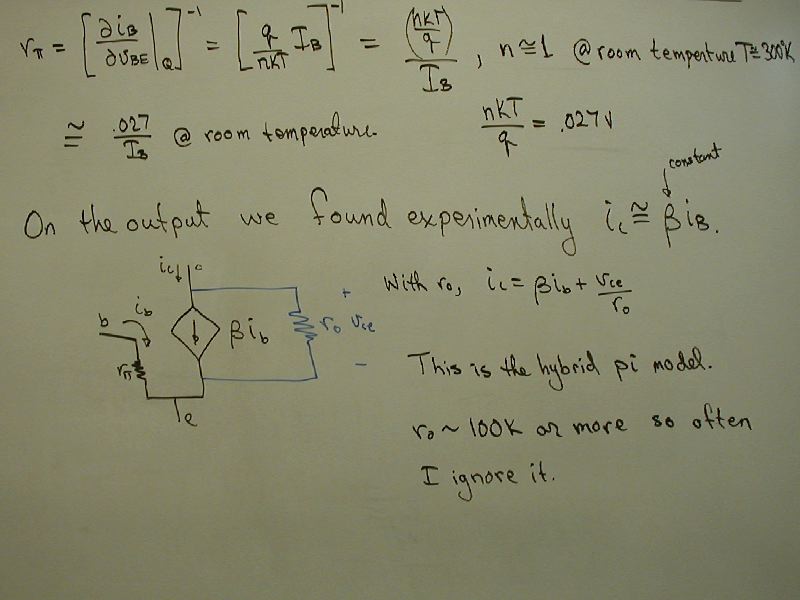 rπ = [∂iB/∂vBE|Q]⁻¹ = [q/nKT IB]⁻¹ = (nKT/q)/IB , n ≅ 1 @ room temperture T≅300°K
≅ .027/IB @ room temperature. nKT/q = .027V
constant
On the output we found experimentally ic ≅ βiB.
ic c
With ro, ic = βib + vce/ro
+
b ib βib ro vce
rπ
−
This is the hybrid pi model.
e
ro ~ 100K or more so often
I ignore it.